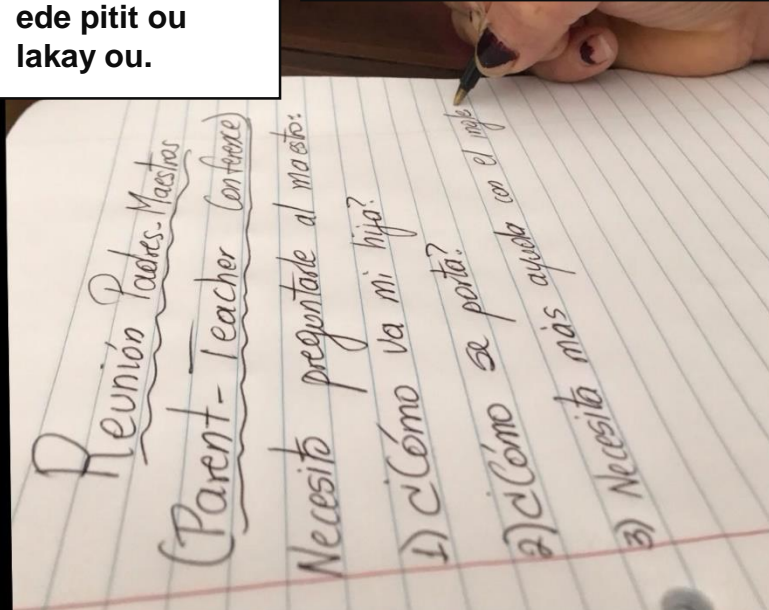 ede pitit ou
lakay ou.
Reunión Padres-Maestros
(Parent-Teacher Conference)
Necesito preguntarle al maestro:
1) ¿Cómo va mi hija?
2) ¿Cómo se porta?
3) Necesita más ayuda con el ingle